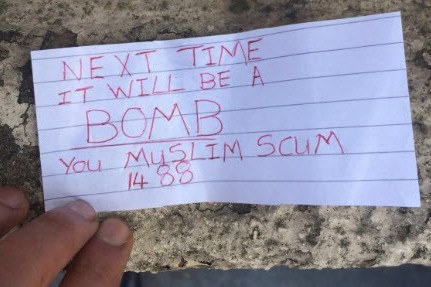 NEXT TIME
IT WILL BE A
BOMB
YOU MUSLIM SCUM
14 88